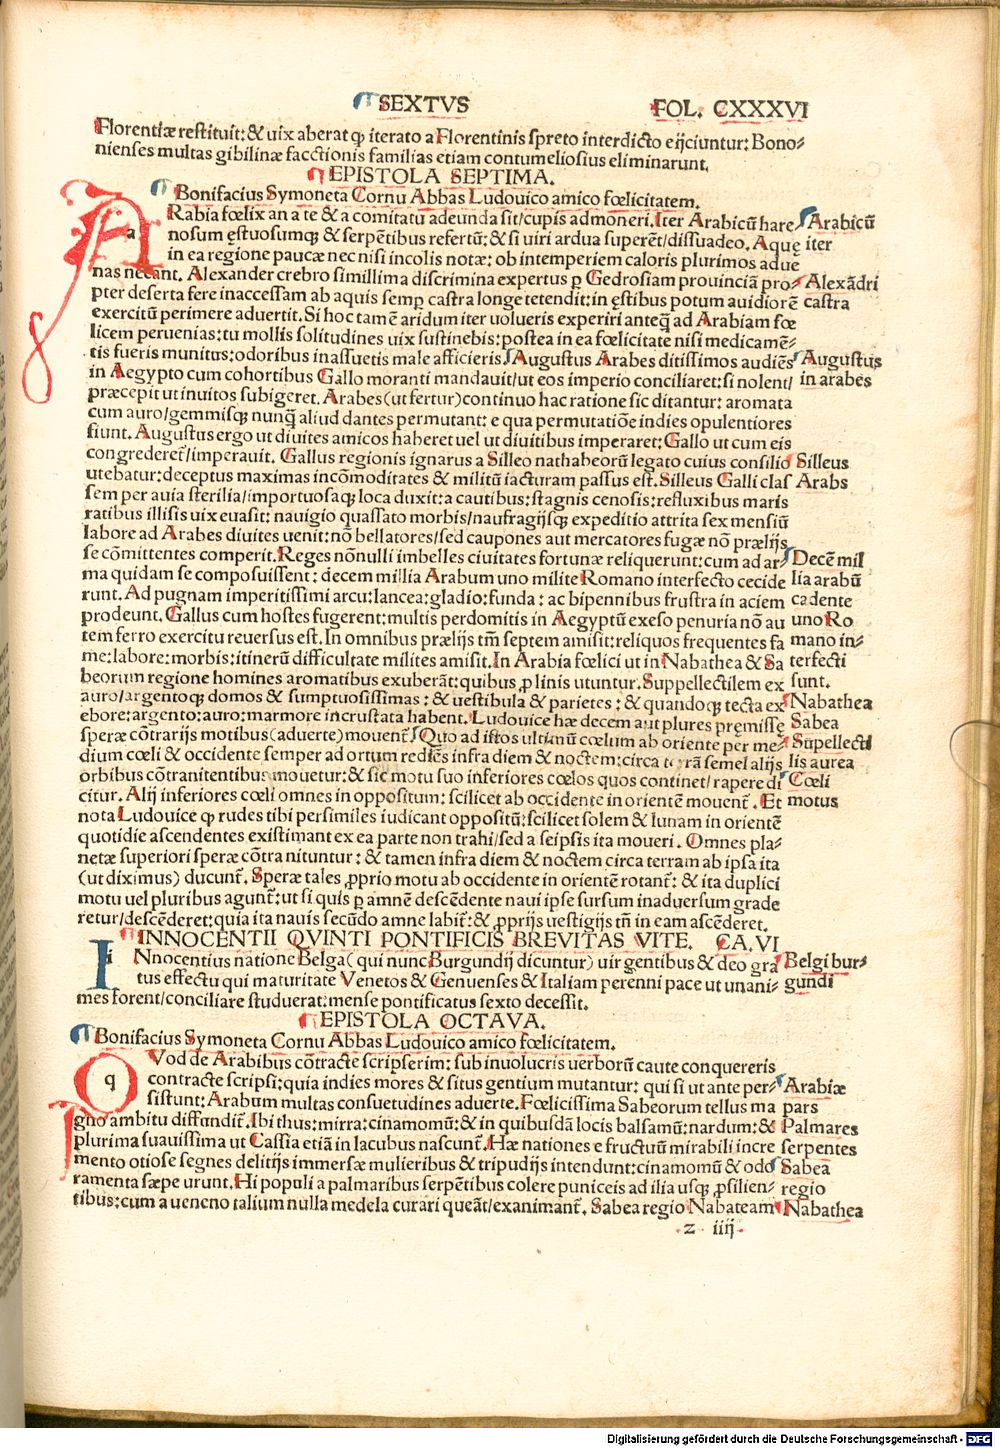 SEXTVS FOL. CXXXVI
Florentiæ restituit: & uix aberat ꝙ iterato a Florentinis spreto interdicto eijciuntur: Bono⸗
nienses multas gibilinæ facctionis familias etiam contumeliosius eliminarunt.
EPISTOLA SEPTIMA.
Bonifacius Symoneta Cornu Abbas Ludouico amico fœlicitatem.
a Rabia fœlix an a te & a comitatu adeunda sit/cupis admoneri. Iter Arabicū hare⸗
nosum ęstuosumqꝫ & serpētibus refertū: & si uiri ardua superēt/dissuadeo. Aquę
in ea regione paucæ nec nisi incolis notæ: ob intemperiem caloris plurimos aduę
nas necant. Alexander crebro simillima discrimina expertus ꝑ Gedrosiam prouinciā pro⸗
pter deserta fere inaccessam ab aquis semꝑ castra longe tetendit: in ęstibus potum auidiorē
exercitū perimere aduertit. Si hoc tamē aridum iter uolueris experiri anteq̄ ad Arabiam fœ
licem peruenias: tu mollis solitudines uix sustinebis: postea in ea fœlicitate nisi medicamē⸗
tis fueris munitus: odoribus inassuetis male afficieris. Augustus Arabes ditissimos audiēs
in Aegypto cum cohortibus Gallo moranti mandauit/ut eos imperio conciliaret: si nolent/
præcepit ut inuitos subigeret. Arabes (ut fertur) continuo hac ratione sic ditantur: aromata
cum auro/gemmisqꝫ nunq̄ aliud dantes permutant: e qua permutatiōe indies opulentiores
fiunt. Augustus ergo ut diuites amicos haberet uel ut diuitibus imperaret: Gallo ut cum eis
congrederet̄/imperauit. Gallus regionis ignarus a Silleo nathabeorū legato cuius consilio
utebatur: deceptus maximas incōmoditates & militū iacturam passus est. Silleus Galli clas
sem per auia sterilia/importuosaqꝫ loca duxit: a cautibus: stagnis cenosis: refluxibus maris
ratibus illisis uix euasit: nauigio quassato morbis/naufragijsqꝫ expeditio attrita sex mensiū
labore ad Arabes diuites uenit: nō bellatores/sed caupones aut mercatores fugæ nō prælijs
se cōmittentes comperit. Reges nōnulli imbelles ciuitates fortunæ reliquerunt: cum ad ar⸗
ma quidam se composuissent: decem millia Arabum uno milite Romano interfecto cecide
runt. Ad pugnam imperitissimi arcu: lancea: gladio: funda: ac bipennibus frustra in aciem
prodeunt. Gallus cum hostes fugerent: multis perdomitis in Aegyptū exeso penuria nō au
tem ferro exercitu reuersus est. In omnibus prælijs tm̄ septem amisit: reliquos frequentes fa
me: labore: morbis: itinerū difficultate milites amisit. In Arabia fœlici ut in Nabathea & Sa
beorum regione homines aromatibus exuberāt: quibus ꝓ linis utuntur. Suppellectilem ex
auro/argentoqꝫ domos & sumptuosissimas: & uestibula & parietes: & quandoqꝫ tecta ex
ebore: argento: auro: marmore incrustata habent. Ludouice hæ decem aut plures pręmissę
speræ cōtrarijs motibus (aduerte) mouent̄. Quo ad istos ultimū cœlum ab oriente per me⸗
dium cœli & occidente semper ad ortum rediēs infra diem & noctem: circa terrā semel alijs
orbibus cōtranitentibus mouetur: & sic motu suo inferiores cœlos quos continet/rapere di
citur. Alij inferiores cœli omnes in oppositum: scilicet ab occidente in orientē mouent̄. Et
nota Ludouice ꝙ rudes tibi persimiles iudicant oppositū: scilicet solem & lunam in orientē
quotidie ascendentes existimant ex ea parte non trahi/sed a seipsis ita moueri. Omnes pla⸗
netæ superiori speræ cōtra nituntur: & tamen infra diem & noctem circa terram ab ipsa ita
(ut diximus) ducunt̄. Speræ tales ꝓprio motu ab occidente in orientē rotant̄: & ita duplici
motu uel pluribus agunt̄: ut si quis ꝑ amnē descēdente naui ipse sursum inaduersum grade
retur/descēderet: quia ita nauis secūdo amne labit̄: & ꝓprijs uestigijs tn̄ in eam ascēderet.
INNOCENTII QVINTI PONTIFICIS BREVITAS VITE. CA. VI
i Nnocentius natione Belga (qui nunc Burgundij dicuntur) uir gentibus & deo gra
tus effectu qui maturitate Venetos & Genuenses & Italiam perenni pace ut unani⸗
mes forent/conciliare studuerat: mense pontificatus sexto decessit.
EPISTOLA OCTAVA.
Bonifacius Symoneta Cornu Abbas Ludouico amico fœlicitatem.
q Vod de Arabibus cōtracte scripserim: sub inuolucris uerborū caute conquereris
contracte scripsi: quia indies mores & situs gentium mutantur: qui si ut ante per⸗
sistunt: Arabum multas consuetudines aduerte. Fœlicissima Sabeorum tellus ma
gno ambitu diffundit̄. Ibi thus: mirra: cinamomū: & in quibusdā locis balsamū: nardum: &
plurima suauissima ut Cassia etiā in lacubus nascunt̄. Hæ nationes e fructuū mirabili incre
mento otiose segnes delitijs immersæ mulieribus & tripudijs intendunt: cinamomū & odo
ramenta sæpe urunt. Hi populi a palmaribus serpētibus colere puniceis ad ilia usqꝫ ꝓsilien⸗
tibus: cum a ueneno talium nulla medela curari queāt/exanimant̄. Sabea regio Nabateam
z iiij
Arabicū
iter
Alexādri
castra
Augustus
in arabes
Silleus
Arabs
Decē mil
lia arabū
cadente
uno Ro
mano in⸗
terfecti
sunt.
Nabathea
Sabea
Supellecti
lis aurea
Cœli
motus
Belgi bur⸗
gundi
Arabiæ
pars
Palmares
serpentes
Sabea
regio
Nabathea
Digitalisierung gefördert durch die Deutsche Forschungsgemeinschaft - DFG